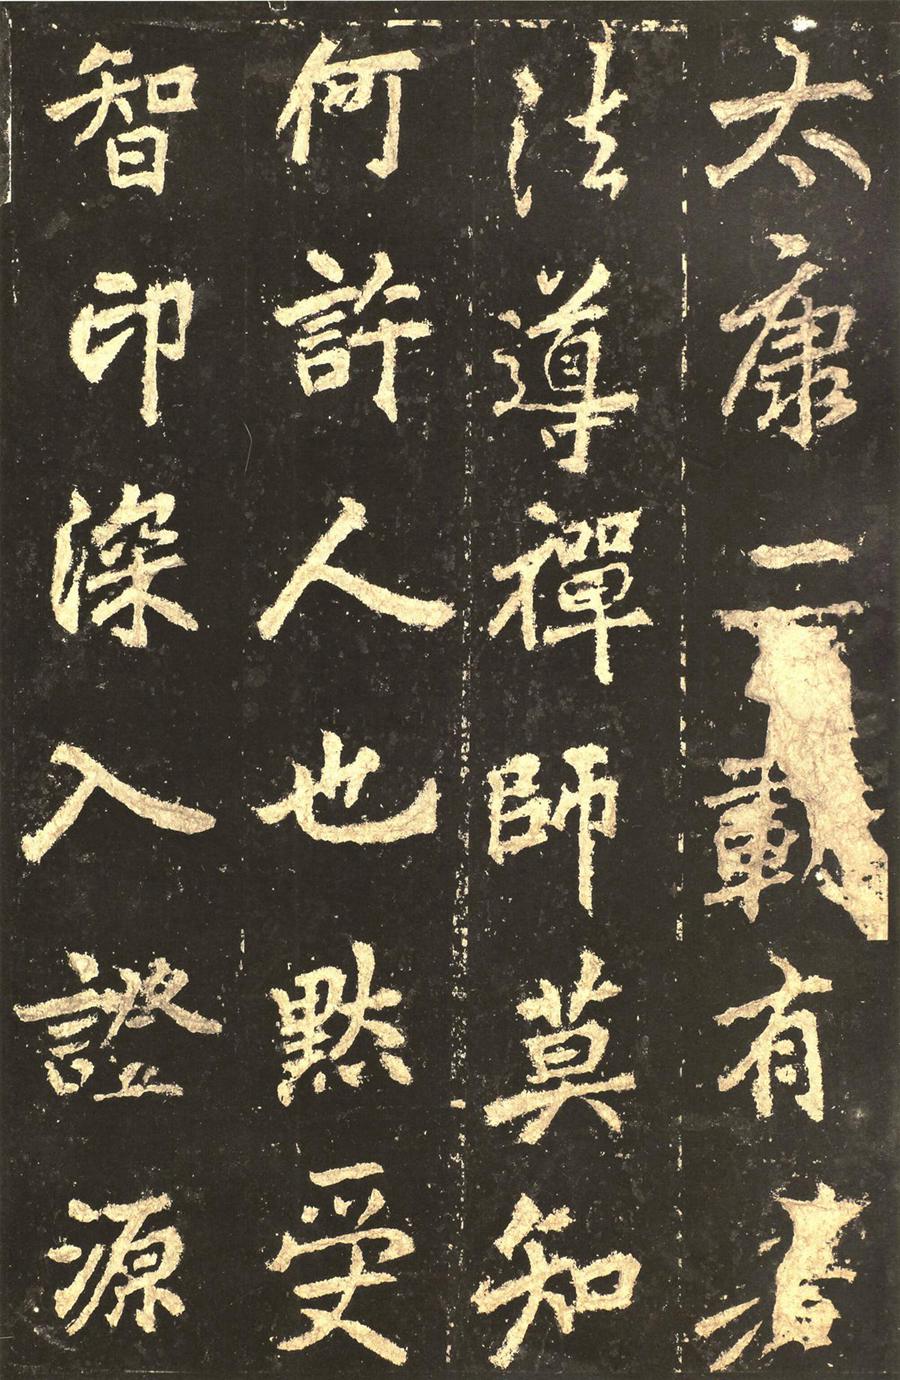 太康二載有若
法導禪師莫知
何許人也默受
智印深入證源